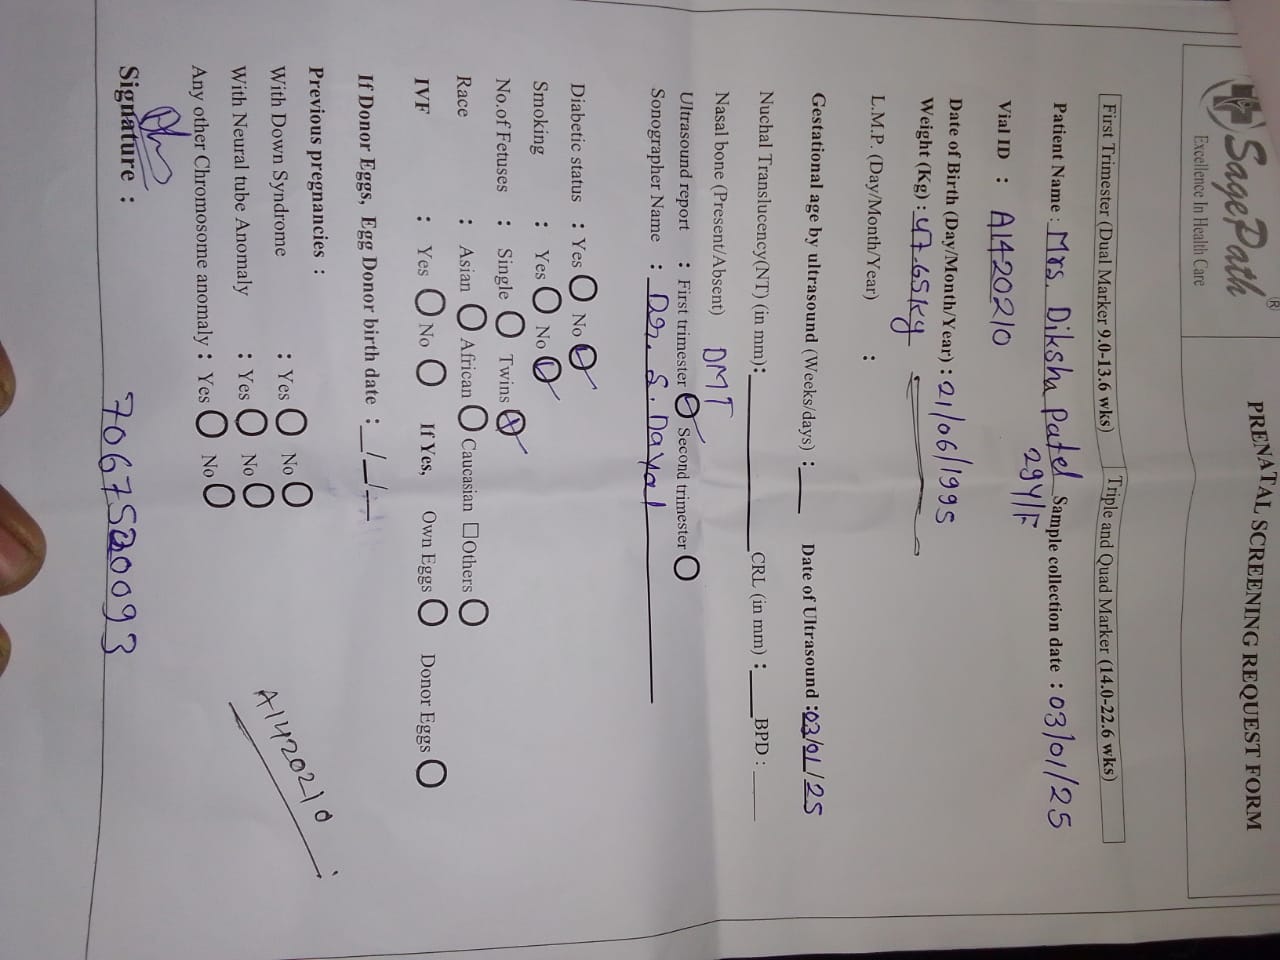 SagePath®
Excellence In Health Care
PRENATAL SCREENING REQUEST FORM
First Trimester (Dual Marker 9.0-13.6 wks) Triple and Quad Marker (14.0-22.6 wks)
Patient Name : Mrs. Diksha Patel Sample collection date : 03/01/25
29Y/F
Vial ID : A1420210
Date of Birth (Day/Month/Year) : 21/06/1995
Weight (Kg) : 47.65kg
L.M.P. (Day/Month/Year) :
Gestational age by ultrasound (Weeks/days) : Date of Ultrasound : 03/01/25
Nuchal Translucency(NT) (in mm): CRL (in mm) : BPD :
Nasal bone (Present/Absent) DMT
Ultrasound report : First trimester Second trimester
Sonographer Name : Dr. S. Dayal
Diabetic status : Yes No
Smoking : Yes No
No.of Fetuses : Single Twins
Race : Asian African Caucasian Others
IVF : Yes No If Yes, Own Eggs Donor Eggs
If Donor Eggs, Egg Donor birth date : / /
Previous pregnancies :
With Down Syndrome : Yes No
With Neural tube Anomaly : Yes No
Any other Chromosome anomaly : Yes No
A1420210
Signature : 7067520093